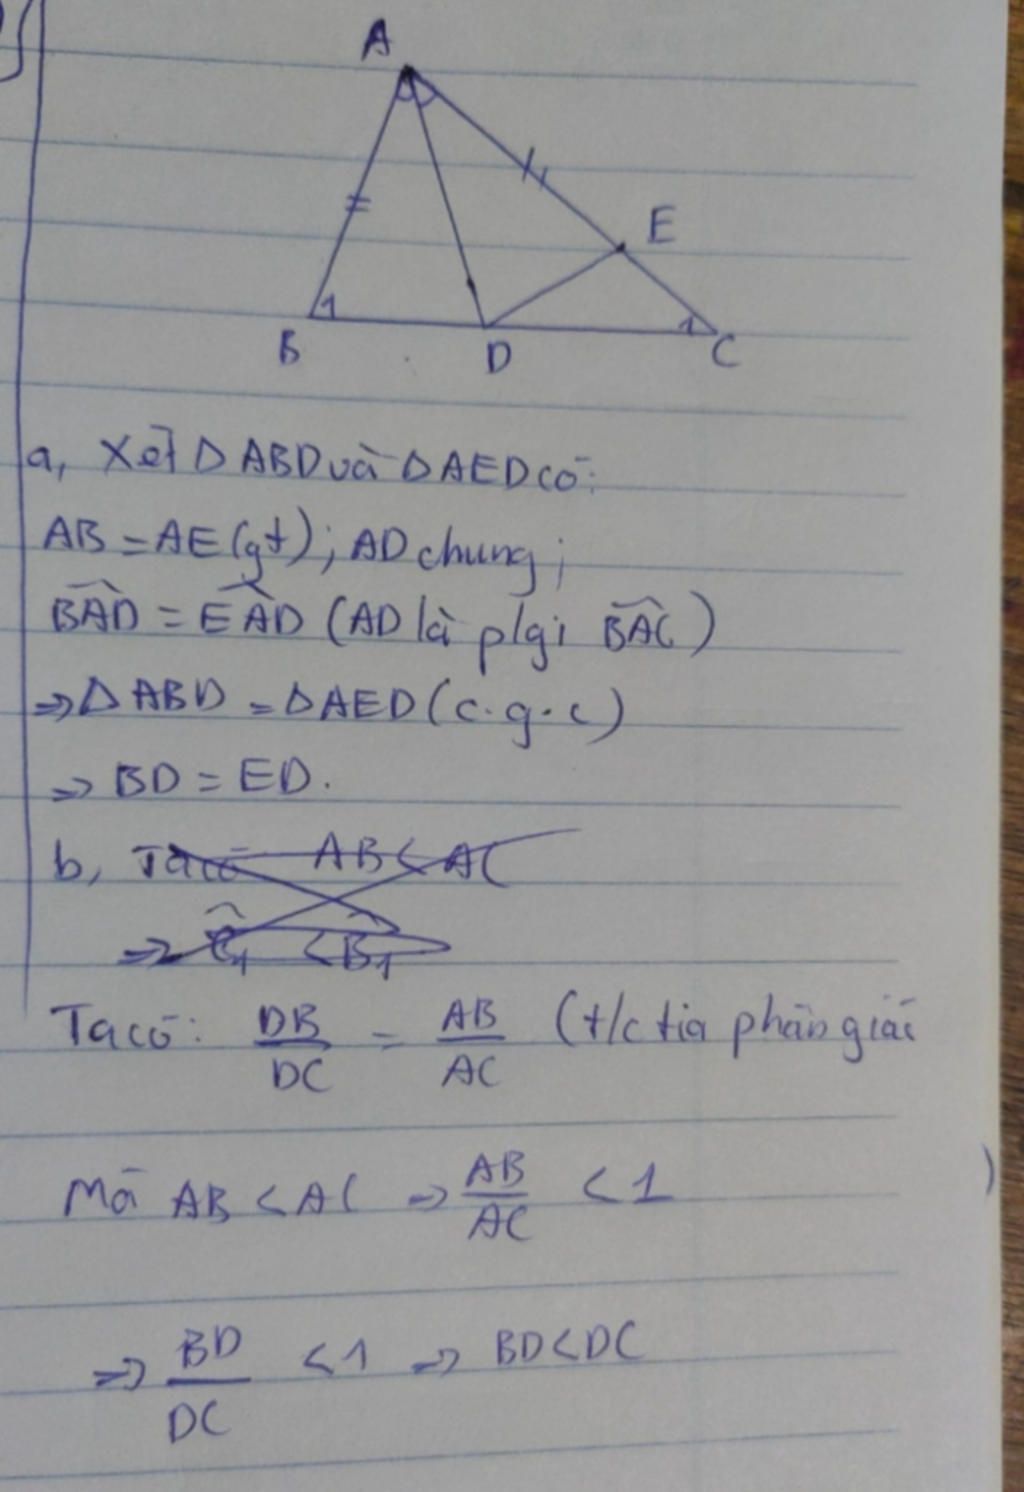 A
E
1
1
B
D
C
a, Xét Δ ABD và Δ AED có:
AB = AE (gt); AD chung;
BAD = EAD (AD là p/gi BAC)
=> Δ ABD = Δ AED (c.g.c)
=> BD = ED.
b, Ta có AB < AC
=> C1 < B1
Ta có: DB/DC = AB/AC (t/c tia phân giác
)
Mà AB < AC => AB/AC < 1
=> BD/DC < 1 => BD < DC